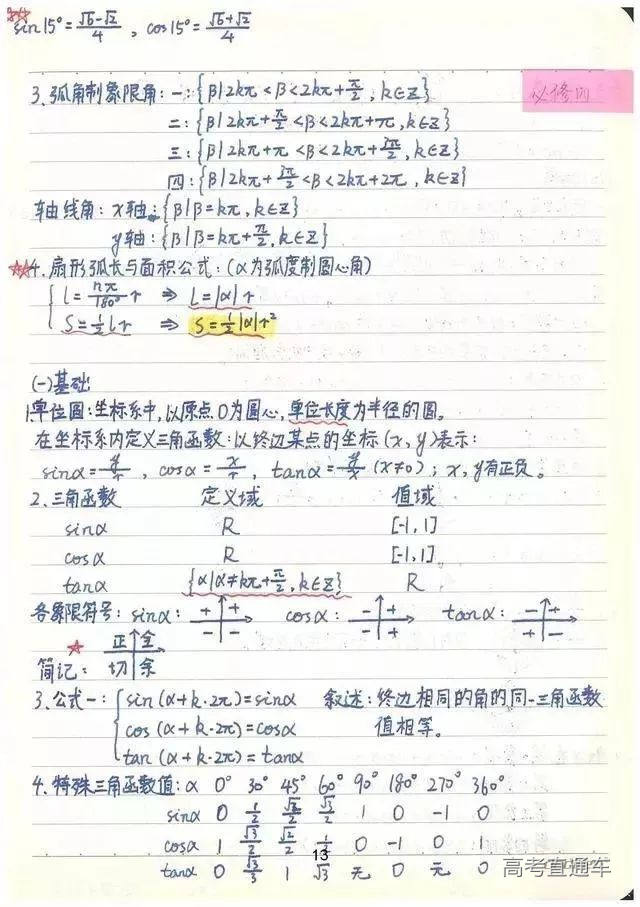 sin15°=(√6-√2)/4 , cos15°=(√6+√2)/4
必修四
3、弧角制象限角：一：{β|2kπ<β<2kπ+π/2，k∈Z}
二：{β|2kπ+π/2<β<2kπ+π，k∈Z}
三：{β|2kπ+π<β<2kπ+3π/2，k∈Z}
四：{β|2kπ+3π/2<β<2kπ+2π，k∈Z}
轴线角：x轴：{β|β=kπ，k∈Z}
y轴：{β|β=kπ+π/2，k∈Z}
4、扇形弧长与面积公式：(α为弧度制圆心角)
l=nπ/180° r ⇒ l=|α|r
S=1/2 lr ⇒ S=1/2|α|r²
(一)基础
1、单位圆：坐标系中，以原点O为圆心，单位长度为半径的圆。
在坐标系内定义三角函数：以终边某点的坐标(x，y)表示：
sinα=y/r ，cosα=x/r ，tanα=y/x (x≠0)；x，y有正负。
2、三角函数 定义域 值域
sinα R [-1，1]
cosα R [-1，1]
tanα {α|α≠kπ+π/2，k∈Z} R
各象限符号：sinα： + + cosα： - + tanα： - +
- - - + + -
正 全
简记： 切 余
3、公式一： sin(α+k·2π)=sinα 叙述：终边相同的角的同一三角函数
cos(α+k·2π)=cosα 值相等。
tan(α+k·2π)=tanα
4、特殊三角函数值：α 0° 30° 45° 60° 90° 180° 270° 360°
sinα 0 1/2 √2/2 √3/2 1 0 -1 0
cosα 1 √3/2 √2/2 1/2 0 -1 0 1
13
tanα 0 √3/3 1 √3 无 0 无 0
高考直通车